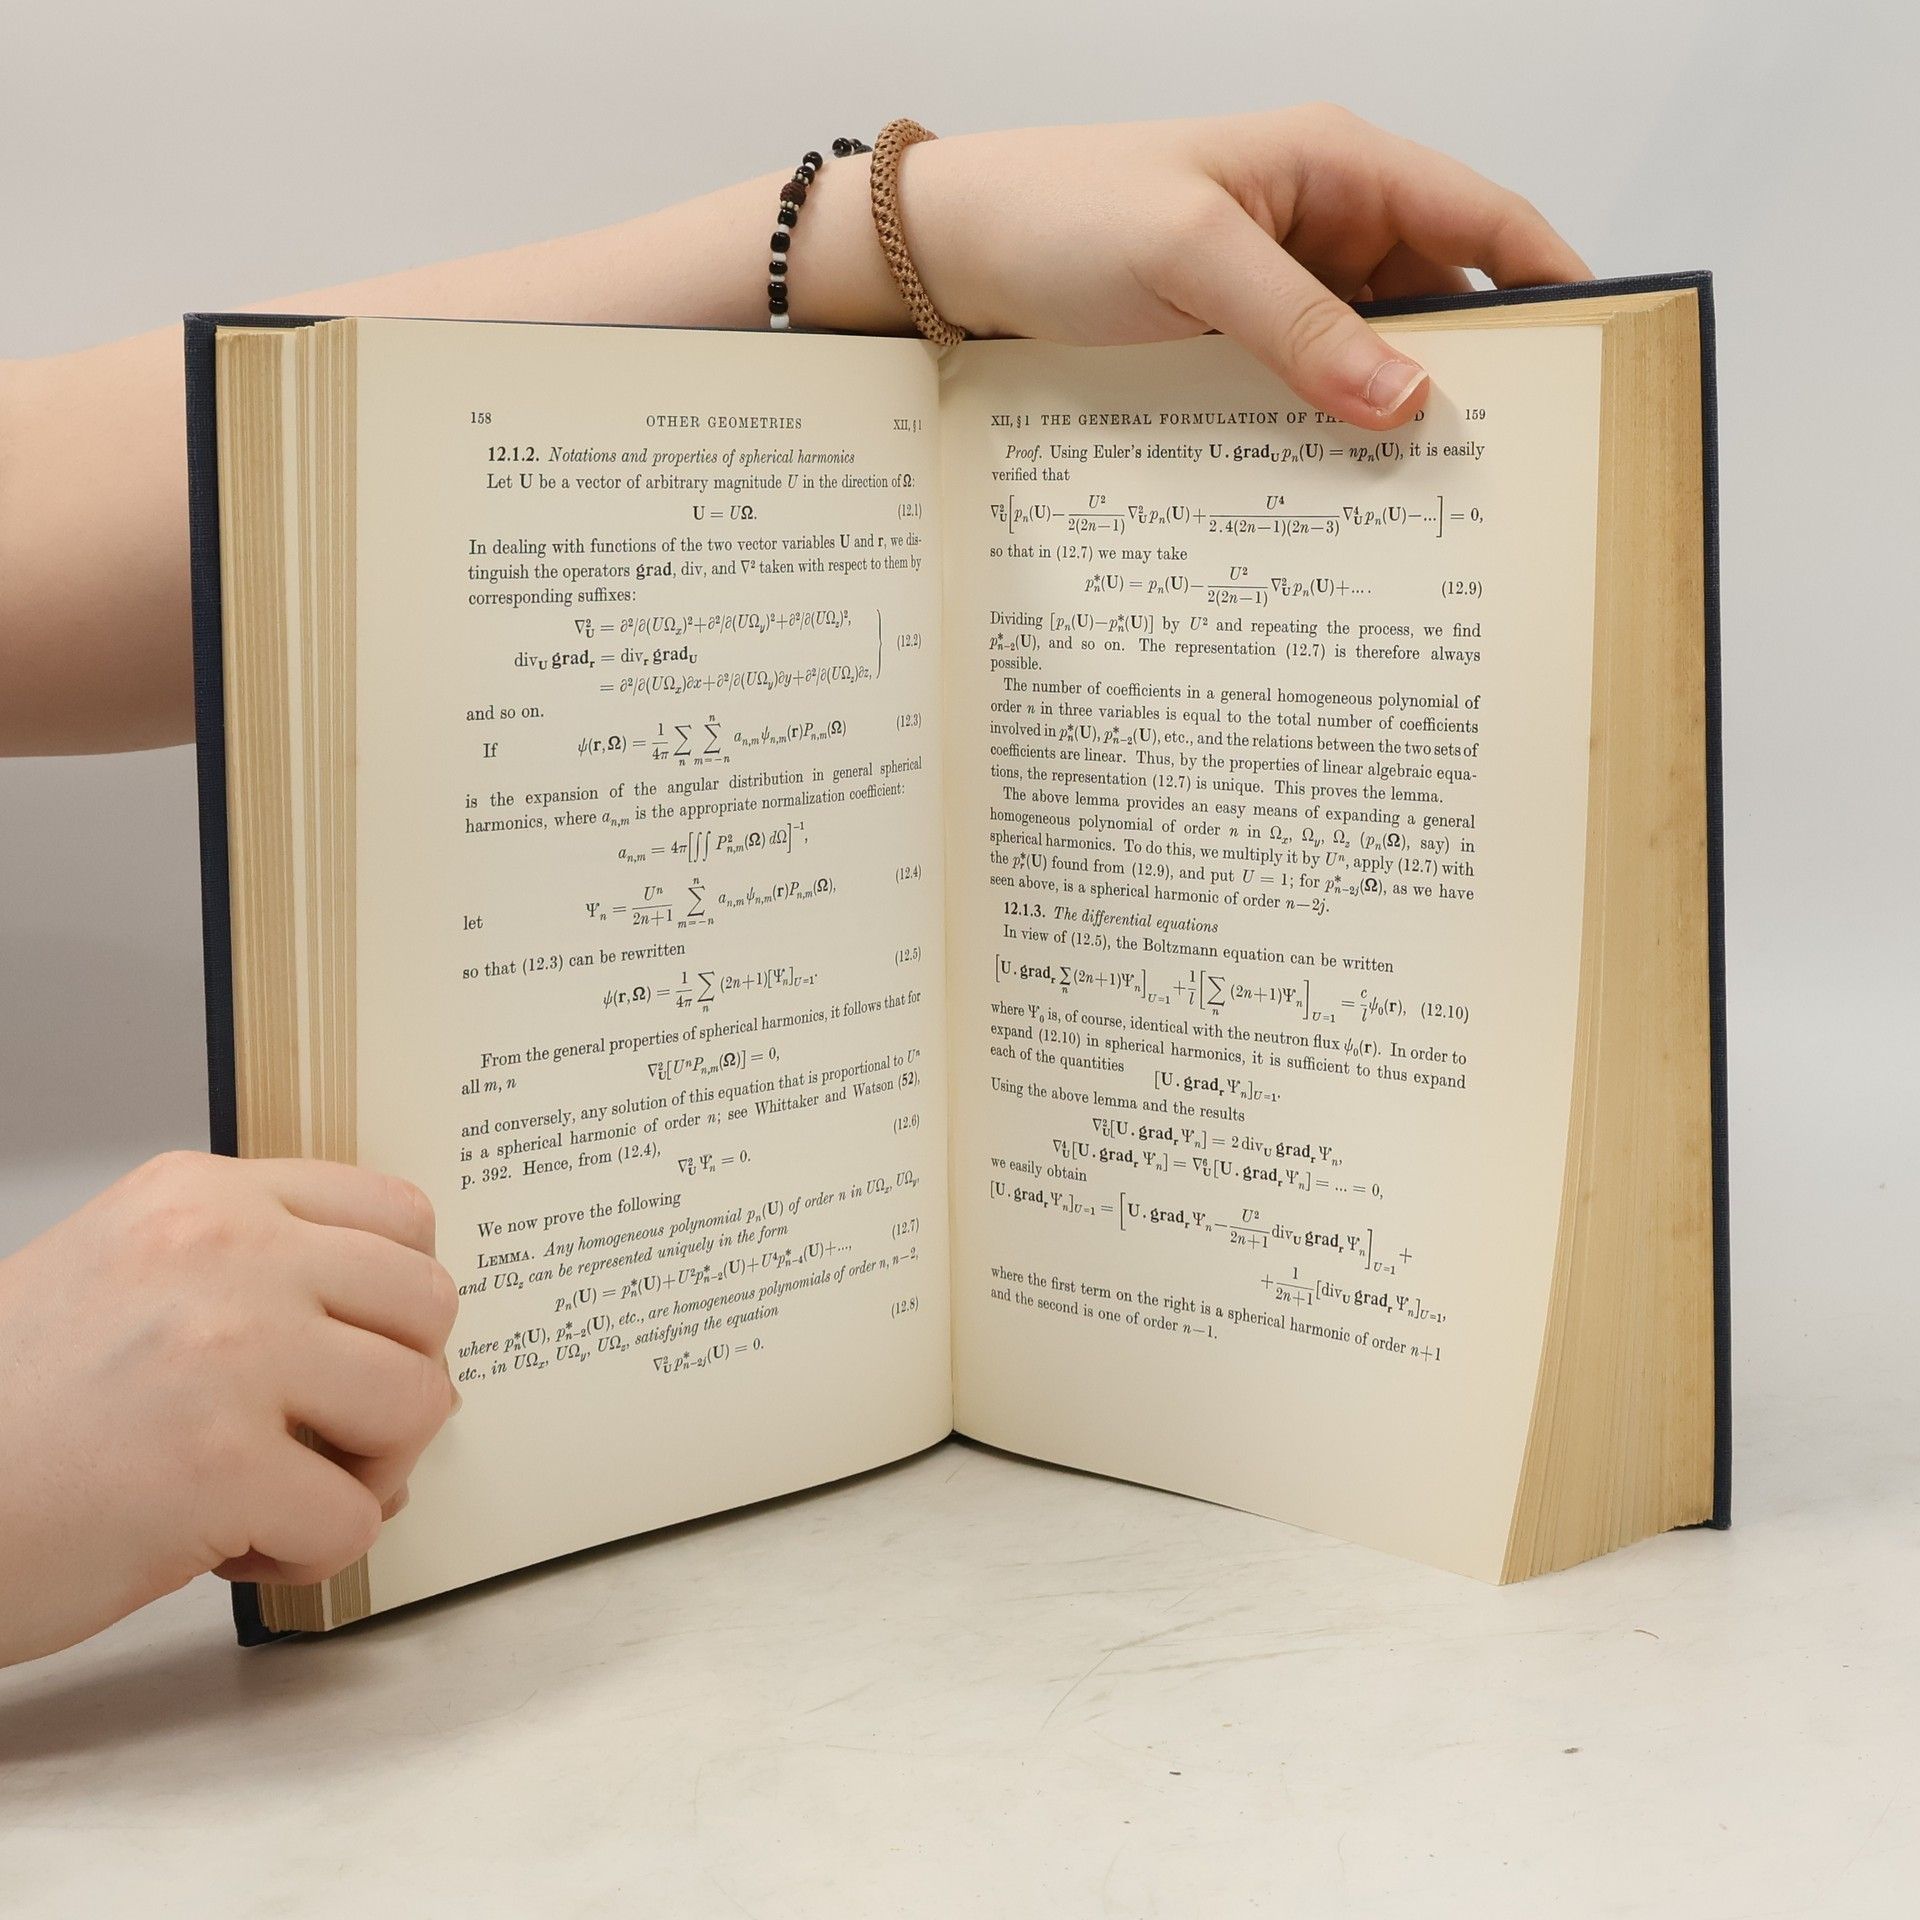 158 OTHER GEOMETRIES XII, § 1
12.1.2. Notations and properties of spherical harmonics
Let U be a vector of arbitrary magnitude U in the direction of Ω:
U = UΩ. (12.1)
In dealing with functions of the two vector variables U and r, we dis-
tinguish the operators grad, div, and ∇² taken with respect to them by
corresponding suffixes:
∇²_U = ∂²/∂(UΩ_x)²+∂²/∂(UΩ_y)²+∂²/∂(UΩ_z)²,
div_U grad_r = div_r grad_U (12.2)
= ∂²/∂(UΩ_x)∂x+∂²/∂(UΩ_y)∂y+∂²/∂(UΩ_z)∂z,
and so on.
If ψ(r,Ω) = 1/4π ∑_n ∑_{m=−n}^n a_{n,m} ψ_{n,m}(r)P_{n,m}(Ω) (12.3)
is the expansion of the angular distribution in general spherical
harmonics, where a_{n,m} is the appropriate normalization coefficient:
a_{n,m} = 4π[∫∫ P²_{n,m}(Ω) dΩ]^{−1},
let Ψ_n = U^n/(2n+1) ∑_{m=−n}^n a_{n,m} ψ_{n,m}(r)P_{n,m}(Ω), (12.4)
so that (12.3) can be rewritten
ψ(r,Ω) = 1/4π ∑_n (2n+1)[Ψ_n]_{U=1}. (12.5)
From the general properties of spherical harmonics, it follows that for
all m, n ∇²_U[U^n P_{n,m}(Ω)] = 0,
and conversely, any solution of this equation that is proportional to U^n
is a spherical harmonic of order n; see Whittaker and Watson (52),
p. 392. Hence, from (12.4),
∇²_U Ψ_n = 0. (12.6)
We now prove the following
LEMMA. Any homogeneous polynomial p_n(U) of order n in UΩ_x, UΩ_y,
and UΩ_z can be represented uniquely in the form
p_n(U) = p*_n(U)+U²p*_{n−2}(U)+U⁴p*_{n−4}(U)+..., (12.7)
where p*_n(U), p*_{n−2}(U), etc., are homogeneous polynomials of order n, n−2,
etc., in UΩ_x, UΩ_y, UΩ_z, satisfying the equation
∇²_U p*_{n−2j}(U) = 0. (12.8)
XII, § 1 THE GENERAL FORMULATION OF 159
Proof. Using Euler's identity U . grad_U p_n(U) = np_n(U), it is easily
verified that
∇²_U[p_n(U)−U²/2(2n−1) ∇²_U p_n(U)+U⁴/2.4(2n−1)(2n−3) ∇⁴_U p_n(U)−...] = 0,
so that in (12.7) we may take
p*_n(U) = p_n(U)−U²/2(2n−1) ∇²_U p_n(U)+.... (12.9)
Dividing [p_n(U)−p*_n(U)] by U² and repeating the process, we find
p*_{n−2}(U), and so on. The representation (12.7) is therefore always
possible.
The number of coefficients in a general homogeneous polynomial of
order n in three variables is equal to the total number of coefficients
involved in p*_n(U), p*_{n−2}(U), etc., and the relations between the two sets of
coefficients are linear. Thus, by the properties of linear algebraic equa-
tions, the representation (12.7) is unique. This proves the lemma.
The above lemma provides an easy means of expanding a general
homogeneous polynomial of order n in Ω_x, Ω_y, Ω_z (p_n(Ω), say) in
spherical harmonics. To do this, we multiply it by U^n, apply (12.7) with
the p*_r(U) found from (12.9), and put U = 1; for p*_{n−2j}(Ω), as we have
seen above, is a spherical harmonic of order n−2j.
12.1.3. The differential equations
In view of (12.5), the Boltzmann equation can be written
[U . grad_r ∑_n (2n+1)Ψ_n]_{U=1} + 1/l [∑_n (2n+1)Ψ_n]_{U=1} = c/l ψ_0(r), (12.10)
where Ψ_0 is, of course, identical with the neutron flux ψ_0(r). In order to
expand (12.10) in spherical harmonics, it is sufficient to thus expand
each of the quantities
[U . grad_r Ψ_n]_{U=1}.
Using the above lemma and the results
∇²_U[U . grad_r Ψ_n] = 2 div_U grad_r Ψ_n,
∇⁴_U[U . grad_r Ψ_n] = ∇⁶_U[U . grad_r Ψ_n] = ... = 0,
we easily obtain
[U . grad_r Ψ_n]_{U=1} = [U . grad_r Ψ_n − U²/(2n+1) div_U grad_r Ψ_n]_{U=1} +
+ 1/(2n+1) [div_U grad_r Ψ_n]_{U=1},
where the first term on the right is a spherical harmonic of order n+1
and the second is one of order n−1.